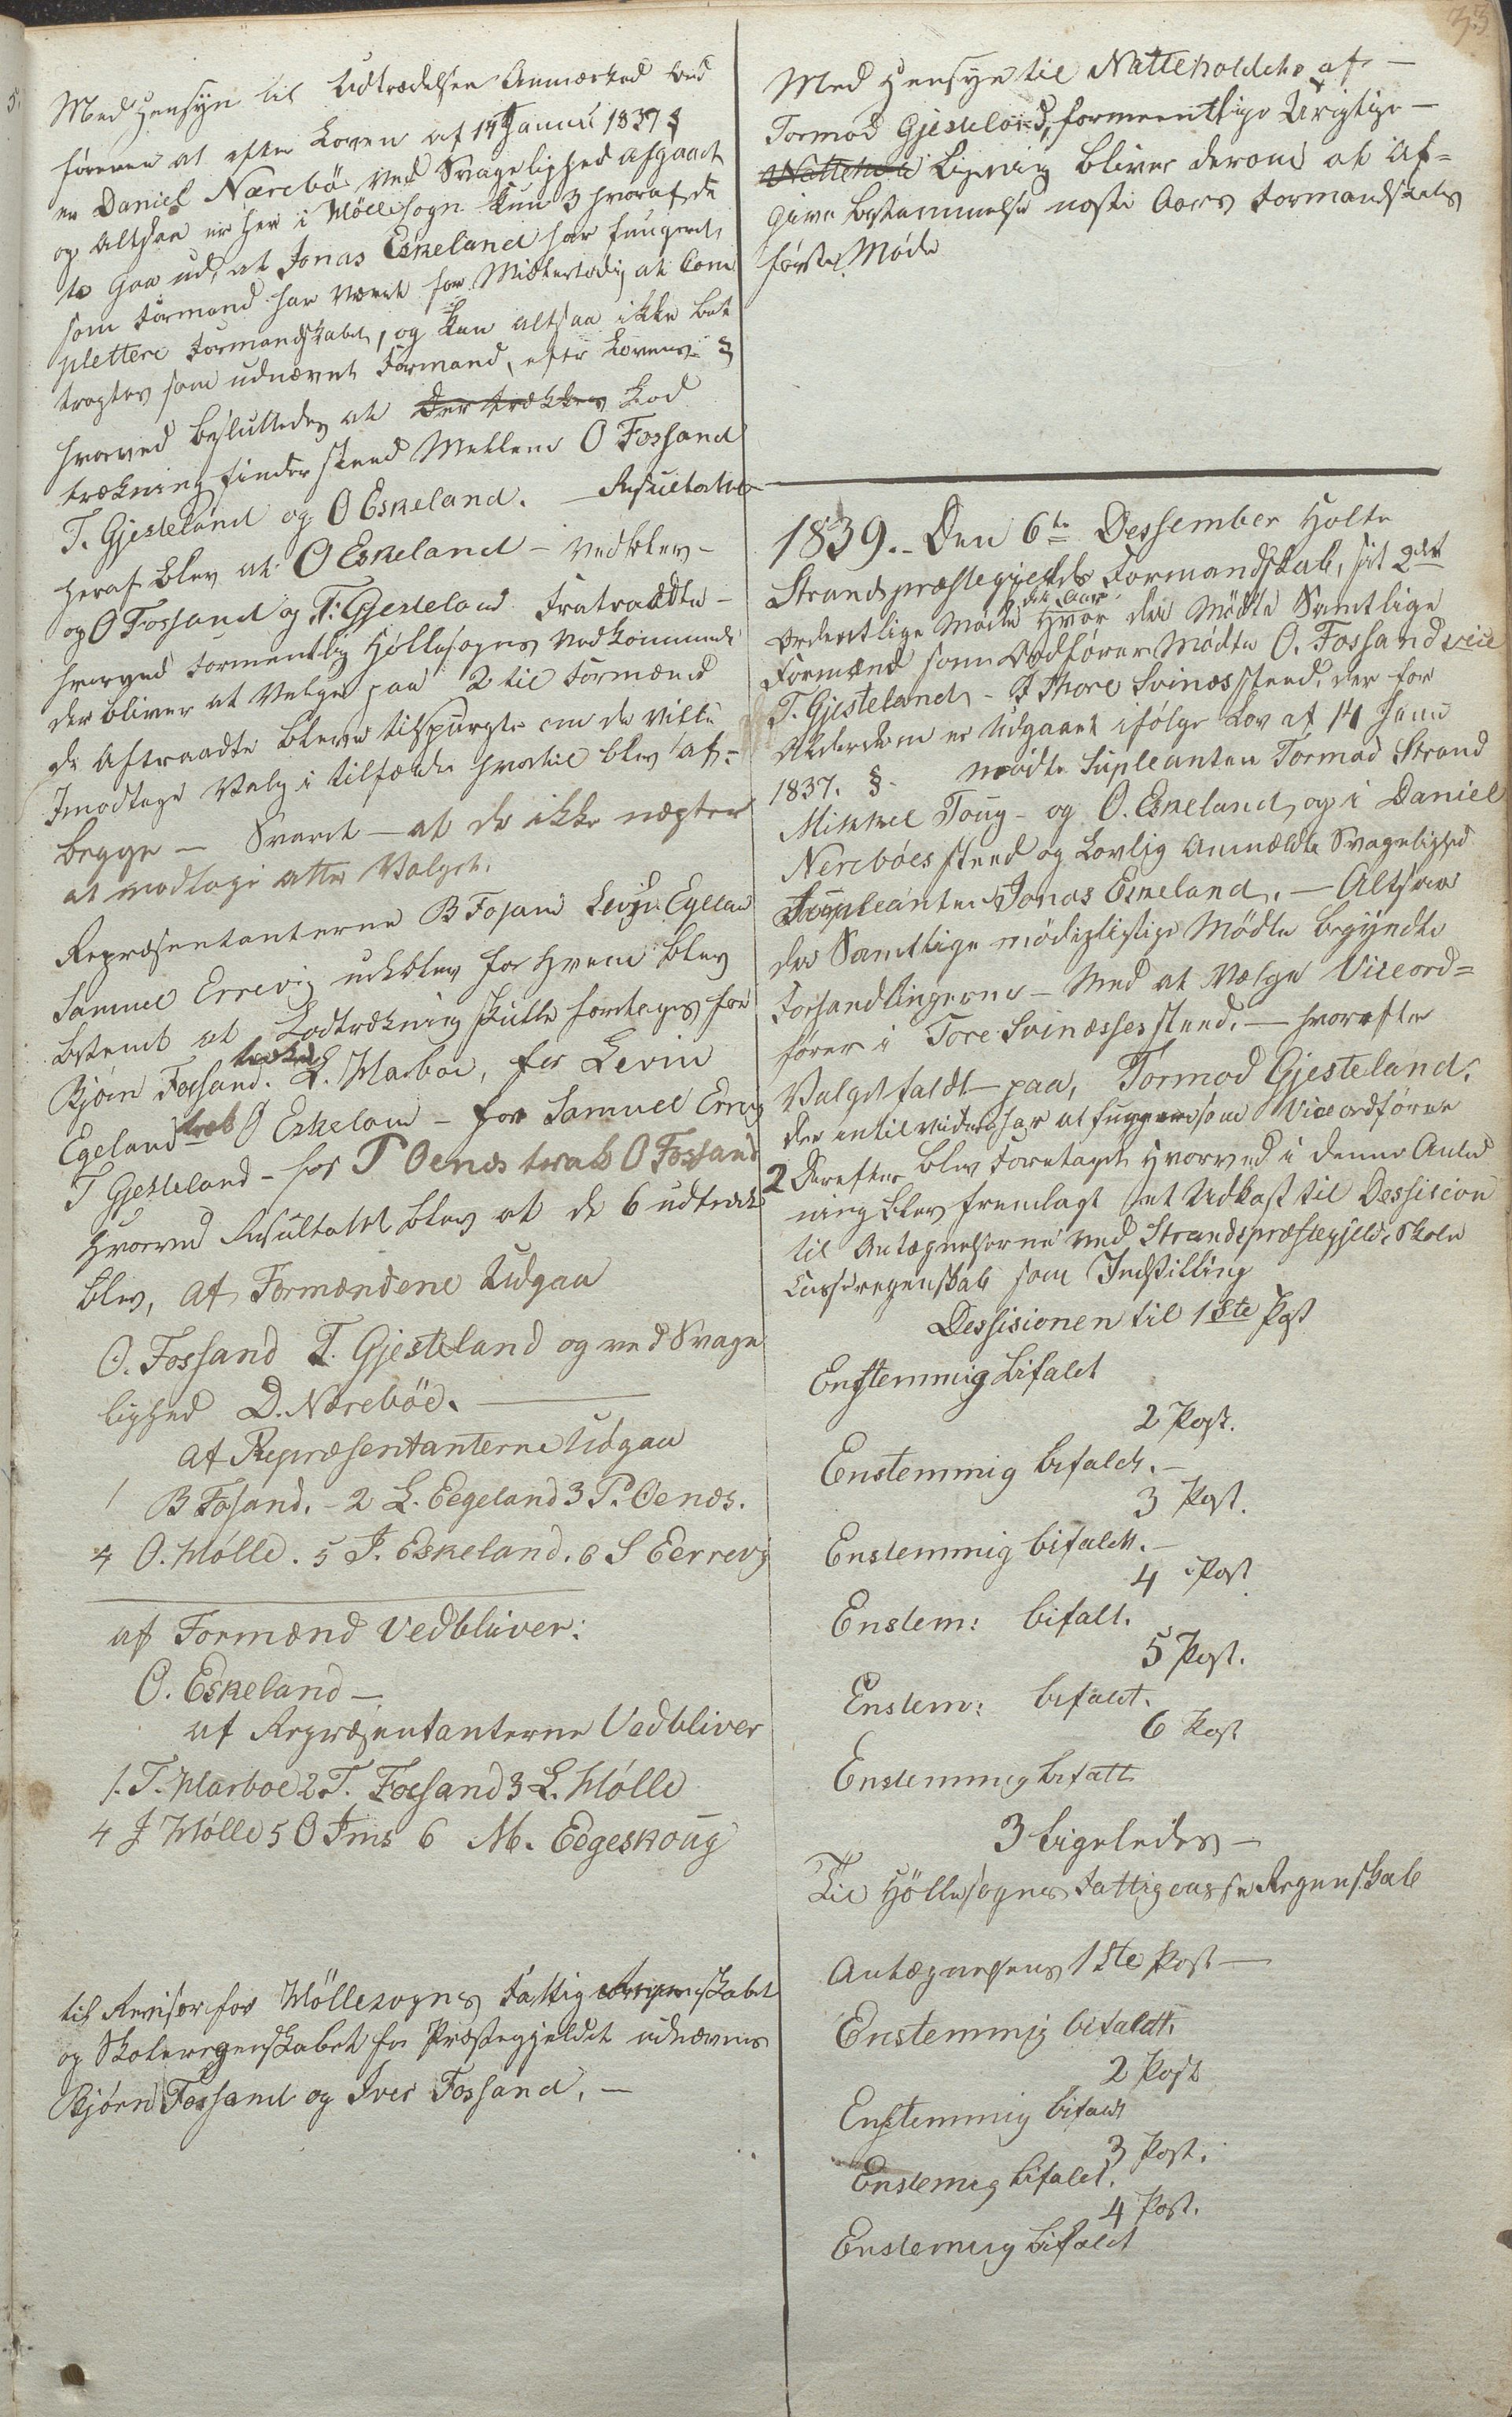 33
5.
Med Hensyn til Udtrædelsen Anmærked Ord
föreren at efter Loven af 14 Januar 1837 §
er Daniel Nærebö ved Svagelighed afgaaet
og Altsaa er her i Höllesogn kun 3 hvoraf de
to gaa ud, at Jonas Eskeland har fungeret
som Formand har været for Midlertidig at Com
plettere Formandskabet, og kan altsaa ikke bet
tragtes som udnævnt Formand, efter Lovens §
hvorved besluttedes at der trækkes Lod
trækning finder sted Mellem O Fossand
T. Gjesteland og O Eskeland. – Resultatet
heraf blev at O Eskeland – vedblev –
og O Fossand og T. Gjesteland fratraadte –
hvorved formentlig Höllesogns vedkommende
der bliver at Velge paa 2 til Formænd
de Aftraadte bleve tilspurgte om de vilde
Imodtage Valg i tilfælde hvortil blev af
begge – Svaret – at de ikke negter
at modtage atter Valget.
Repræsentanterne B Fosand Levin Egeland
Samuel Errevig udblev for hvem blev
bestemt at Lodtrækning skulle foretages for
Björn Fossand. trækked L. Warboe, for Levin
Egeland trak O Eskeland – for Samuel Errevig
T Gjesteland – for P Oenæs trak O Fossand
Hvorved Resultatet blev at de 6 udtrædte
blev, af Formændene Udgaa
O. Fossand T. Gjesteland og ved Svage
lighed D. Næreböe.
af Repræsentanterne Udgaa
1 B Fosand. – 2 L. Eegeland 3 P. Oenæs.
4 O. Hölle. 5 J. Eskeland. 6 S Eerrevig
af Formænd Vedbliver:
O. Eskeland –
af Repræsentanterne Vedbliver
1. T. Warboe 2 T. Fossand 3 L. Hölle
4 J Hölle 5 O Ims 6 M. Eegeskoug
til Revisor for Höllesogns Fattig Regenskabet
og Skoleregenskabet for Præstegjeldet udnævnes
Bjørn Fossand og Iver Fossand. –
Med Hensyn til Natteholdets af –
Tormod Gjesteland, formeentlige Urigtige –
Lejning bliver derom at Af-
give bestemmelse næste Aars Formandskabs
förste Möde
1839. – Den 6te Dessember Holte
Strandspræstegjelds Formandskab, sit 2det
Ordentlige Möde dette Aar Hvor da Mödte Samtlige
Formænd som Ordförer Mödte O. Fossand vice
T. Gjesteland – I Thore Svinæs sted, der for
Alderdom er Udgaaet ifölge Lov af 14 Janu
1837. § mödte Supleanten Tormod Strand
Mikkel Toug – og O. Eskeland, og i Daniel
Nereböes sted og Lovlig Anmældte Svagelighed
Supleanten Jonas Eskeland. – Altsaa
da Samtlige mödepligtige Mödte begyndte
Forhandlingerne – Med at Vælge Viceord=
förer i Tore Svinæsses sted. – hvorefter
Valget faldt paa, Tormod Gjesteland.
der indtil videre har at fungere som Viceordförer
2 Derefter blev Foretaget Hvorved i denne Anled
ning blev fremlagt et Udkast til Dessision
til Antegnelserne ved Strandspræstegjelds Skole
Casseregenskab som Indstilling
Dessisionen til 1ste Post
Enstemmig bifaldt
2 Post.
Enstemmig bifaldt. –
3 Post.
Enstemmig bifaldt. –
4 Post
Enstem: bifalt.
5 Post.
Enstem: bifaldt.
6 Post
Enstemmig bifalt
3 Ligeledes –
Til Höllesogns Fattigcasse Regenskab
Antegnelsens 1ste Post –
Enstemmig bifaldt.
2 Post
Enstemmig bifaldt
3 Post.
Enstemig bifaldt.
4 Post.
Enstemmig bifaldt